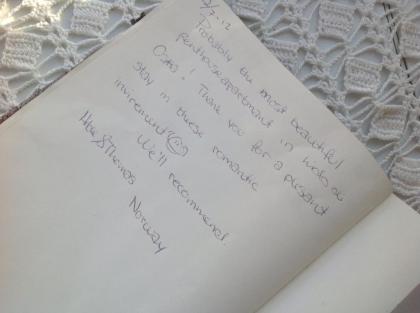 Probably the most beautiful
Penthouseapartment in
! Thank you for a plesant
stay in these romantic
invirement
We'll recommend.
& Thomas
Norway